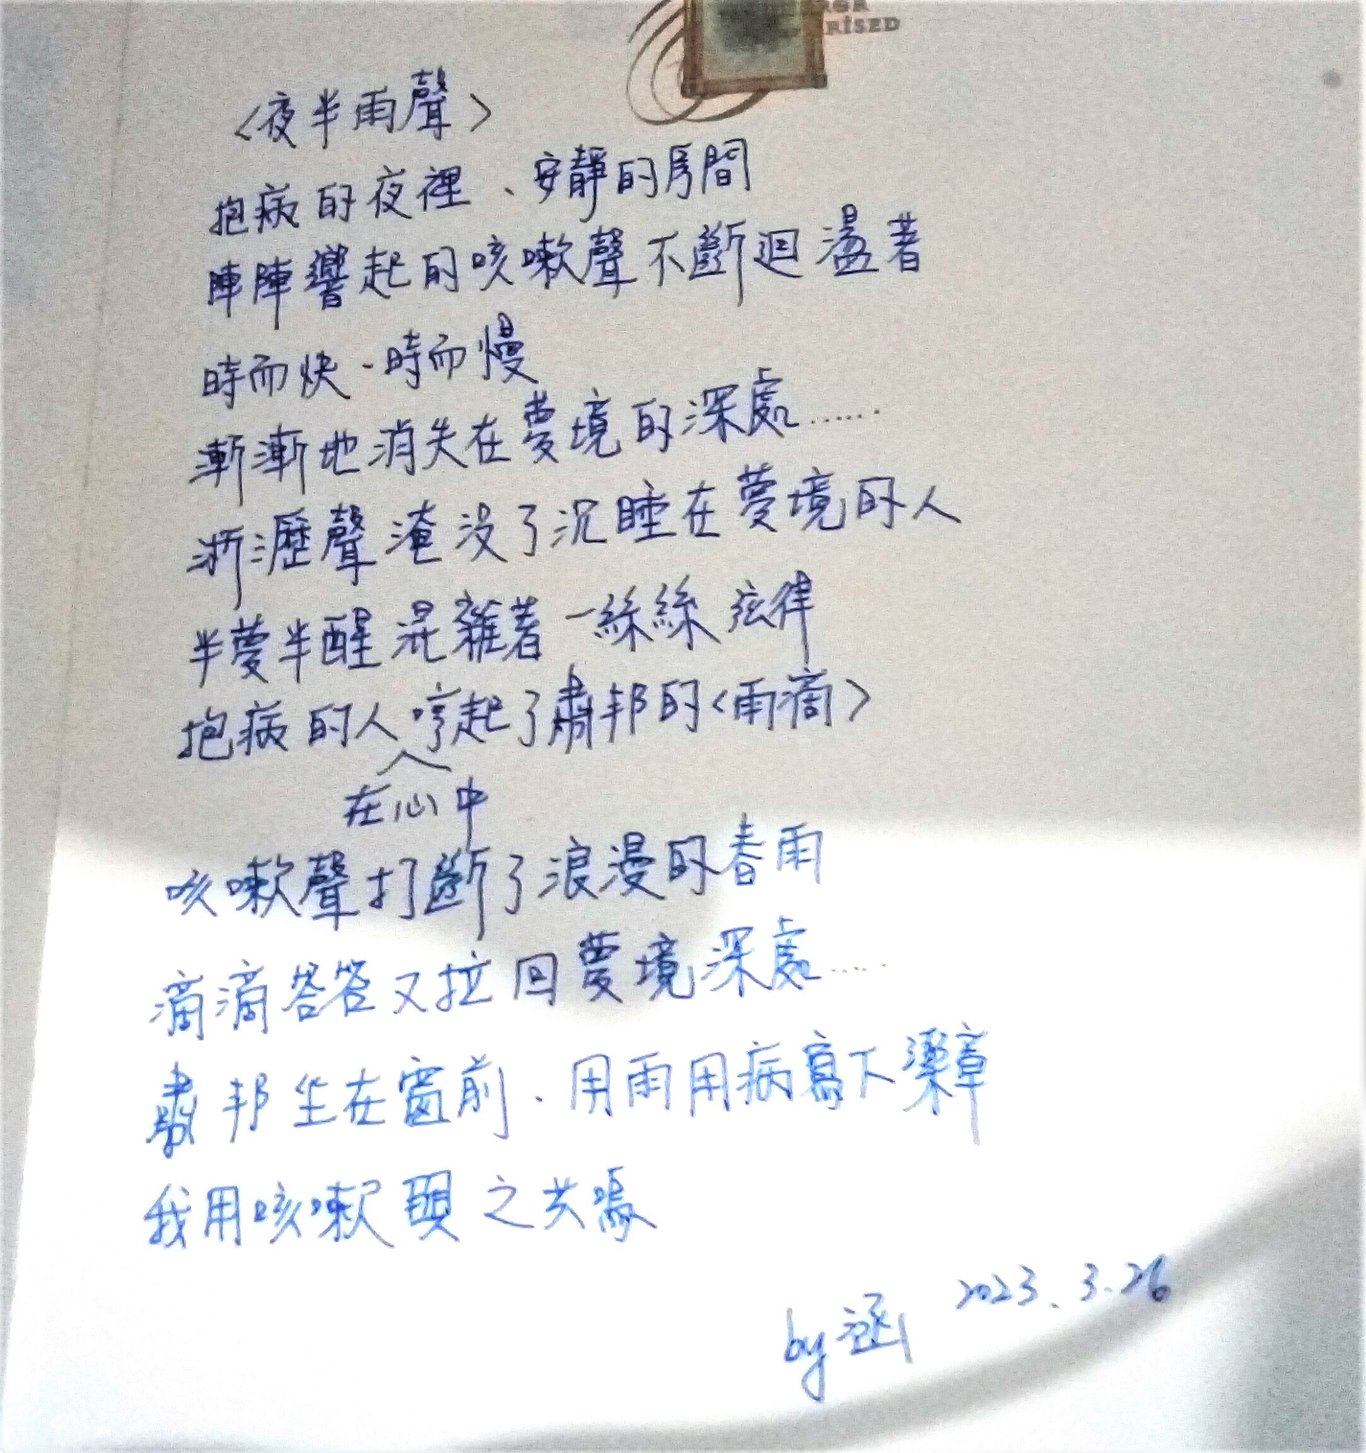 RISED
〈夜半雨聲〉
抱病的夜裡、安靜的房間
陣陣響起的咳嗽聲不斷迴盪著
時而快、時而慢
漸漸地消失在夢境的深處……
淅瀝聲淹沒了沉睡在夢境的人
半夢半醒混雜著一絲絲弦律
抱病的人哼起了蕭邦的〈雨滴〉
在心中
咳嗽聲打斷了浪漫的春雨
滴滴答答又拉回夢境深處……
蕭邦坐在窗前、用雨用病寫下樂章
我用咳嗽與之共鳴
by 涵 2023.3.26